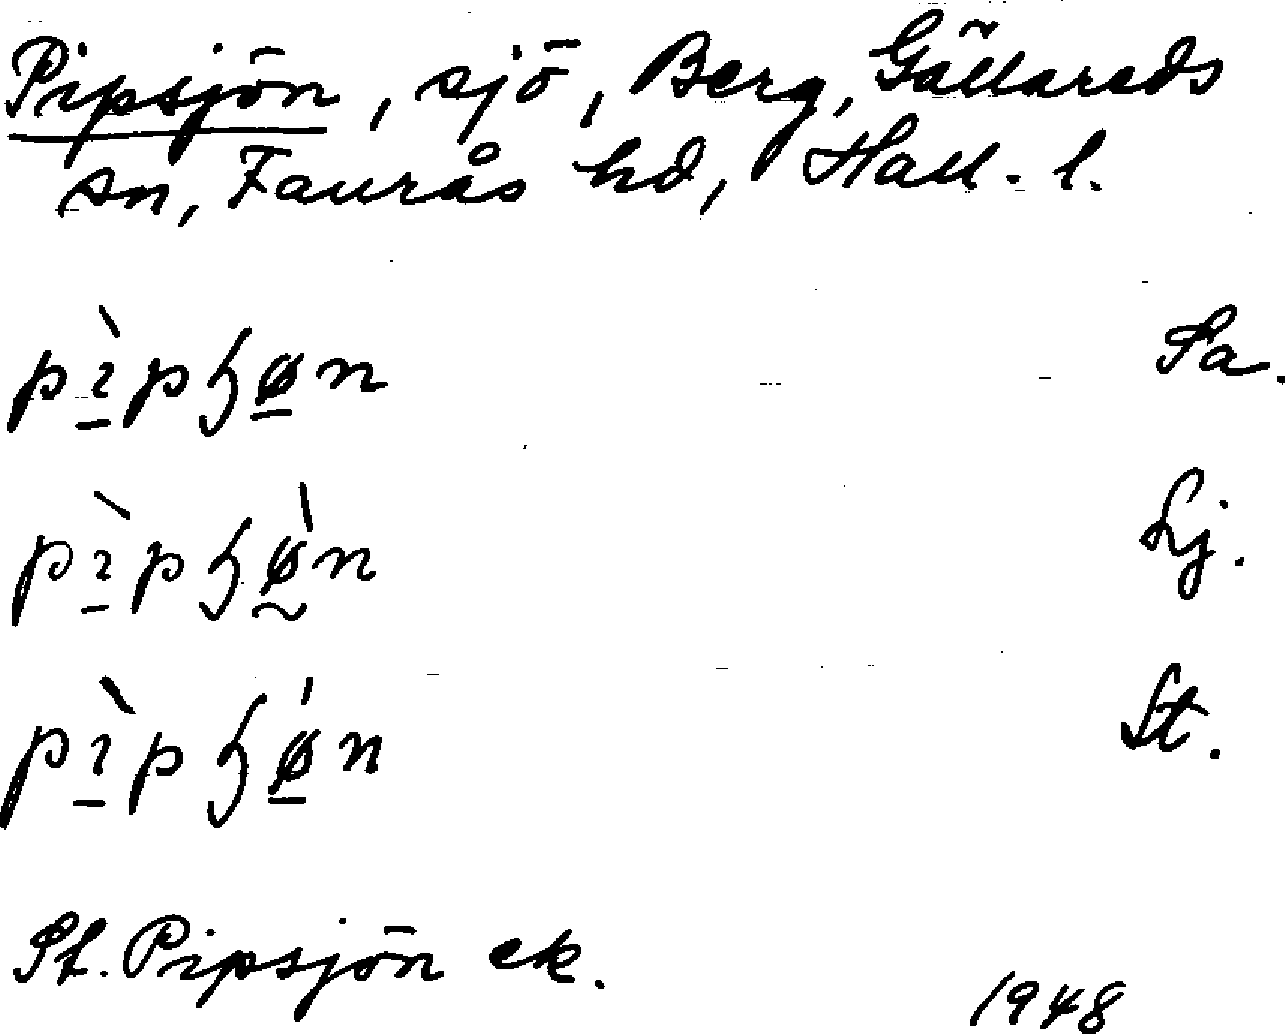 Pipsjön, sjö, Berg, Gällareds
sn, Faurås hd, Hall. l.
pìpɧøn Sa.
pìpɧøn Lj.
pìpɧøn St.
St. Pipsjön ek.
1948